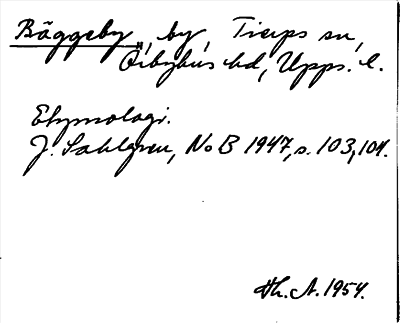 Bäggeby, by, Tierps sn,
Örbyhus hd, Upps. l.
Etymologi.
J. Sahlgren, NoB 1947, s. 103, 104.
Hh. A. 1954.